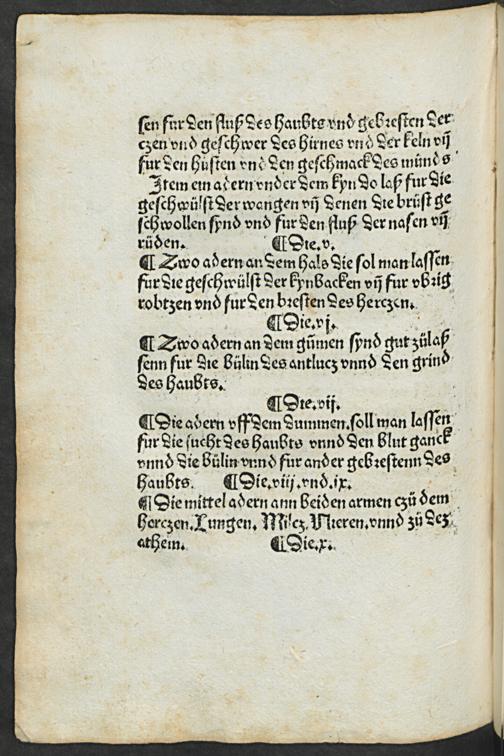 sen fur den fluß des haubts vnd gebresten der
czen vnd geschwer des hirnes vnd der keln vñ
fur den hůsten vnd den geschmack des munds
Item em adern vnder dem kyn do laß fur die
geschwůlst der wangen vñ denen die brůst ge
schwollen synd vnd fur den fluß der nasen vñ
růden. ¶ Die.v.
¶ Zwo adern an dem hals die sol man lassen
fur die geschwůlst der kynbacken vñ fur vbrig
robtzen vnd fur den bresten des herczen.
¶ Die.vj.
¶ Zwo adern an dem gůmen synd gut zůlaß
senn fur die bůlin des antlucz vnnd den grind
des haubts.
¶ Die.vij.
¶ Die adern vff dem dummen.soll man lassen
fur die sucht des haubts vnnd den blut ganck
vnnd die bůlin vnnd fur ander gebrestenn des
haubts. ¶ Die.viij.vnd.ix.
¶ Die mittel adern ann beiden armen czů dem
herczen. Lungen. Milcz. Nieren.vnnd zů dez
athem. ¶ Die.x.